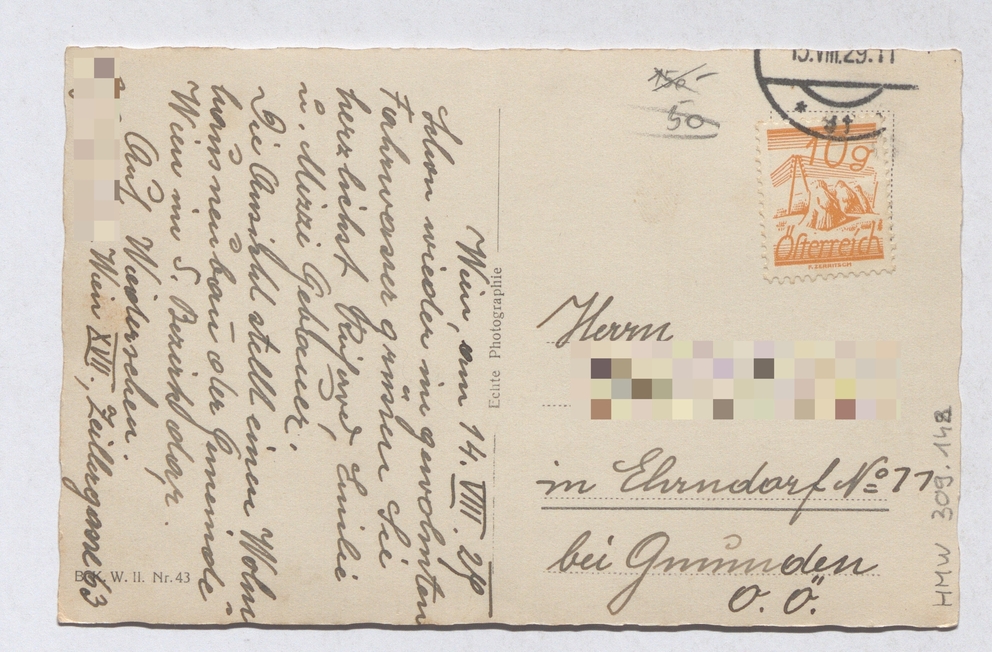 Wien, am 14. VIII. 29
Schon wieder im gewohnten
Fahrwasser grüssen Sie
herzlichst Raimund, Emilie
u. Mizzi Geblauer.
Die Ansicht stellt einen Wohn-
hausneubau der Gemeinde
Wien im 5. Bezirk dar.
Auf Wiedersehen.
Wien XVII., Zeillergasse 63
B.K.W.II. Nr.43
Echte Photographie
150-
50
15.VIII.29.11
* 11
10g
Österreich
Herrn
in Ehrndorf No 77
bei Gmunden
O.Ö.
HMW 309.148